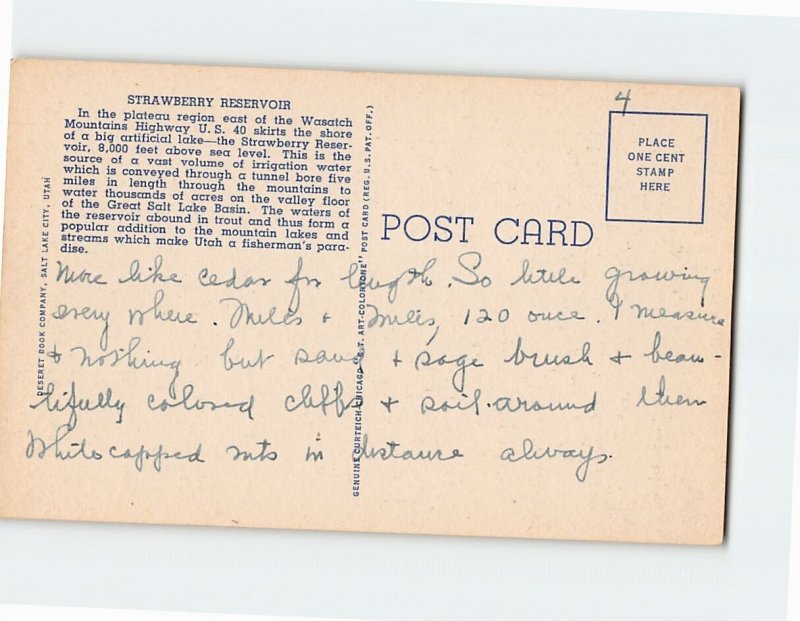 STRAWBERRY RESERVOIR
In the plateau region east of the Wasatch
Mountains Highway U. S. 40 skirts the shore
of a big artificial lake—the Strawberry Reser-
voir, 8,000 feet above sea level. This is the
source of a vast volume of irrigation water
which is conveyed through a tunnel bore five
miles in length through the mountains to
water thousands of acres on the valley floor
of the Great Salt Lake Basin. The waters of
the reservoir abound in trout and thus form a
popular addition to the mountain lakes and
streams which make Utah a fisherman's para-
dise.
DESERET BOOK COMPANY, SALT LAKE CITY, UTAH
GENUINE CURTEICH-CHICAGO "C.T. ART-COLORTONE" POST CARD (REG. U.S. PAT. OFF.)
POST CARD
4
PLACE
ONE CENT
STAMP
HERE
More like cedar for length. So little growing
every where. Miles + Miles, 120 once. I measure
+ nothing but sand + sage brush + beau-
tifully colored cliffs + soil around them
White capped mts in distance always.